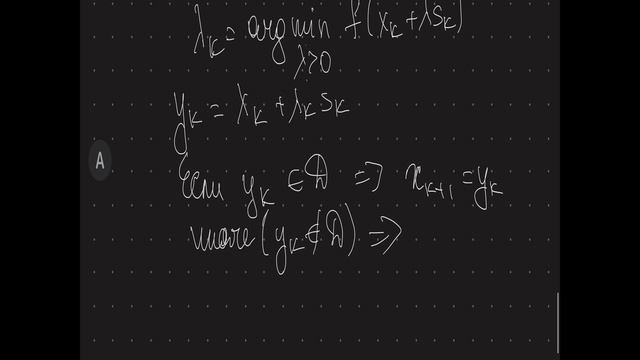 λ_k = arg min f(x_k + λ s_k)
λ>0
y_k = x_k + λ_k s_k
A
Если y_k ∈ D => x_{k+1} = y_k
иначе (y_k ∉ D) =>